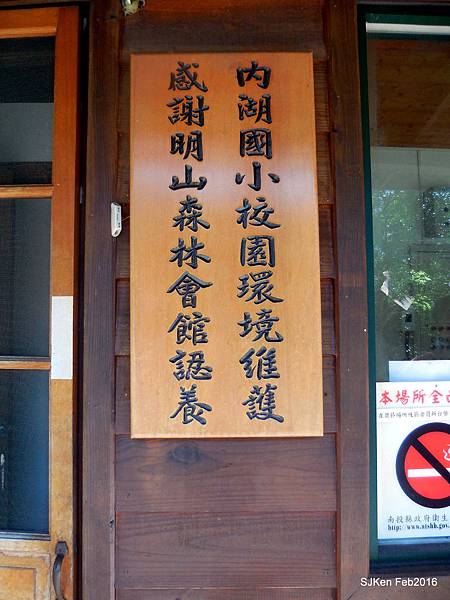 內湖國小校園環境維護
感謝明山森林會館認養
本場所全
南投縣政府衛生
http://www.ntshb.gov.
SJKen Feb2016